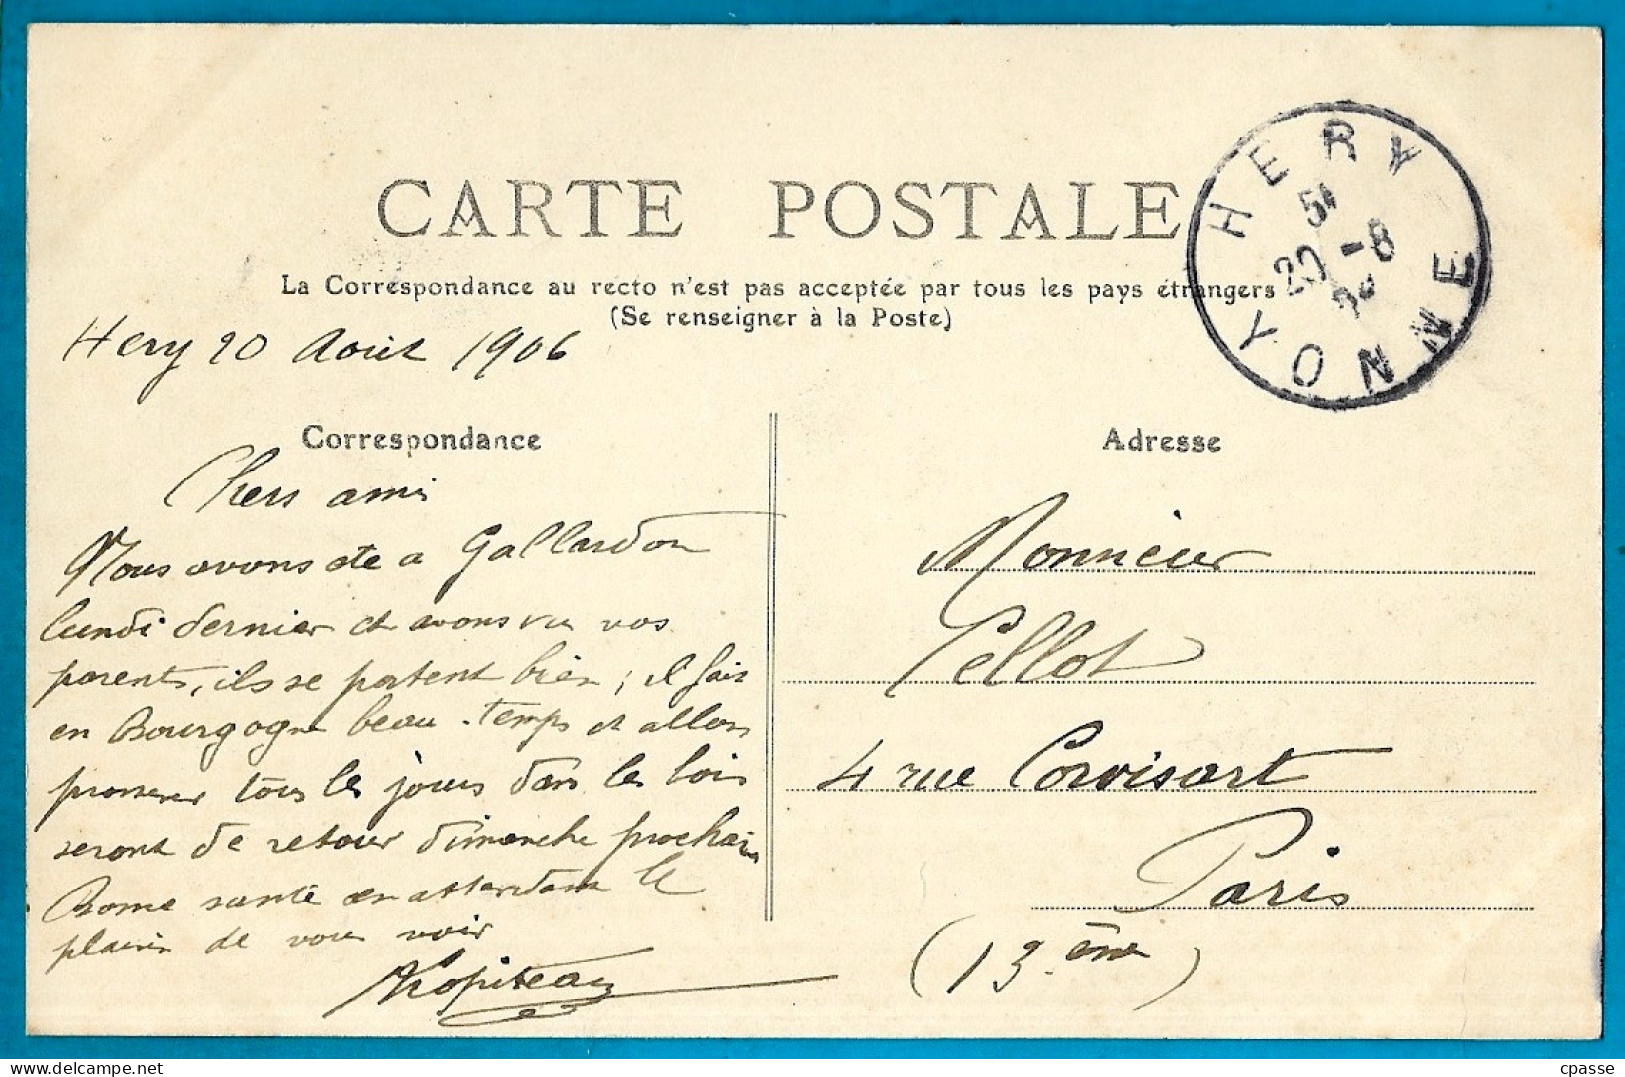 CARTE POSTALE
La Correspondance au recto n'est pas acceptée par tous les pays étrangers
(Se renseigner à la Poste)
HERY
5
20 -8
YONNE
Hery 20 Août 1906
Correspondance
Chers ami
Nous avons ete a Gallardon
lundi dernier et avons vu vos
parents, ils se portent bien ; il fait
en Bourgogne beau temps et allons
promener tous les jours dans les bois
seront de retour dimanche prochain
Bonne santé en attendant le
plaisir de vous voir
Adresse
Monsieur
Pellot
4 rue Corvisart
Paris
(13 ème)
cpasse